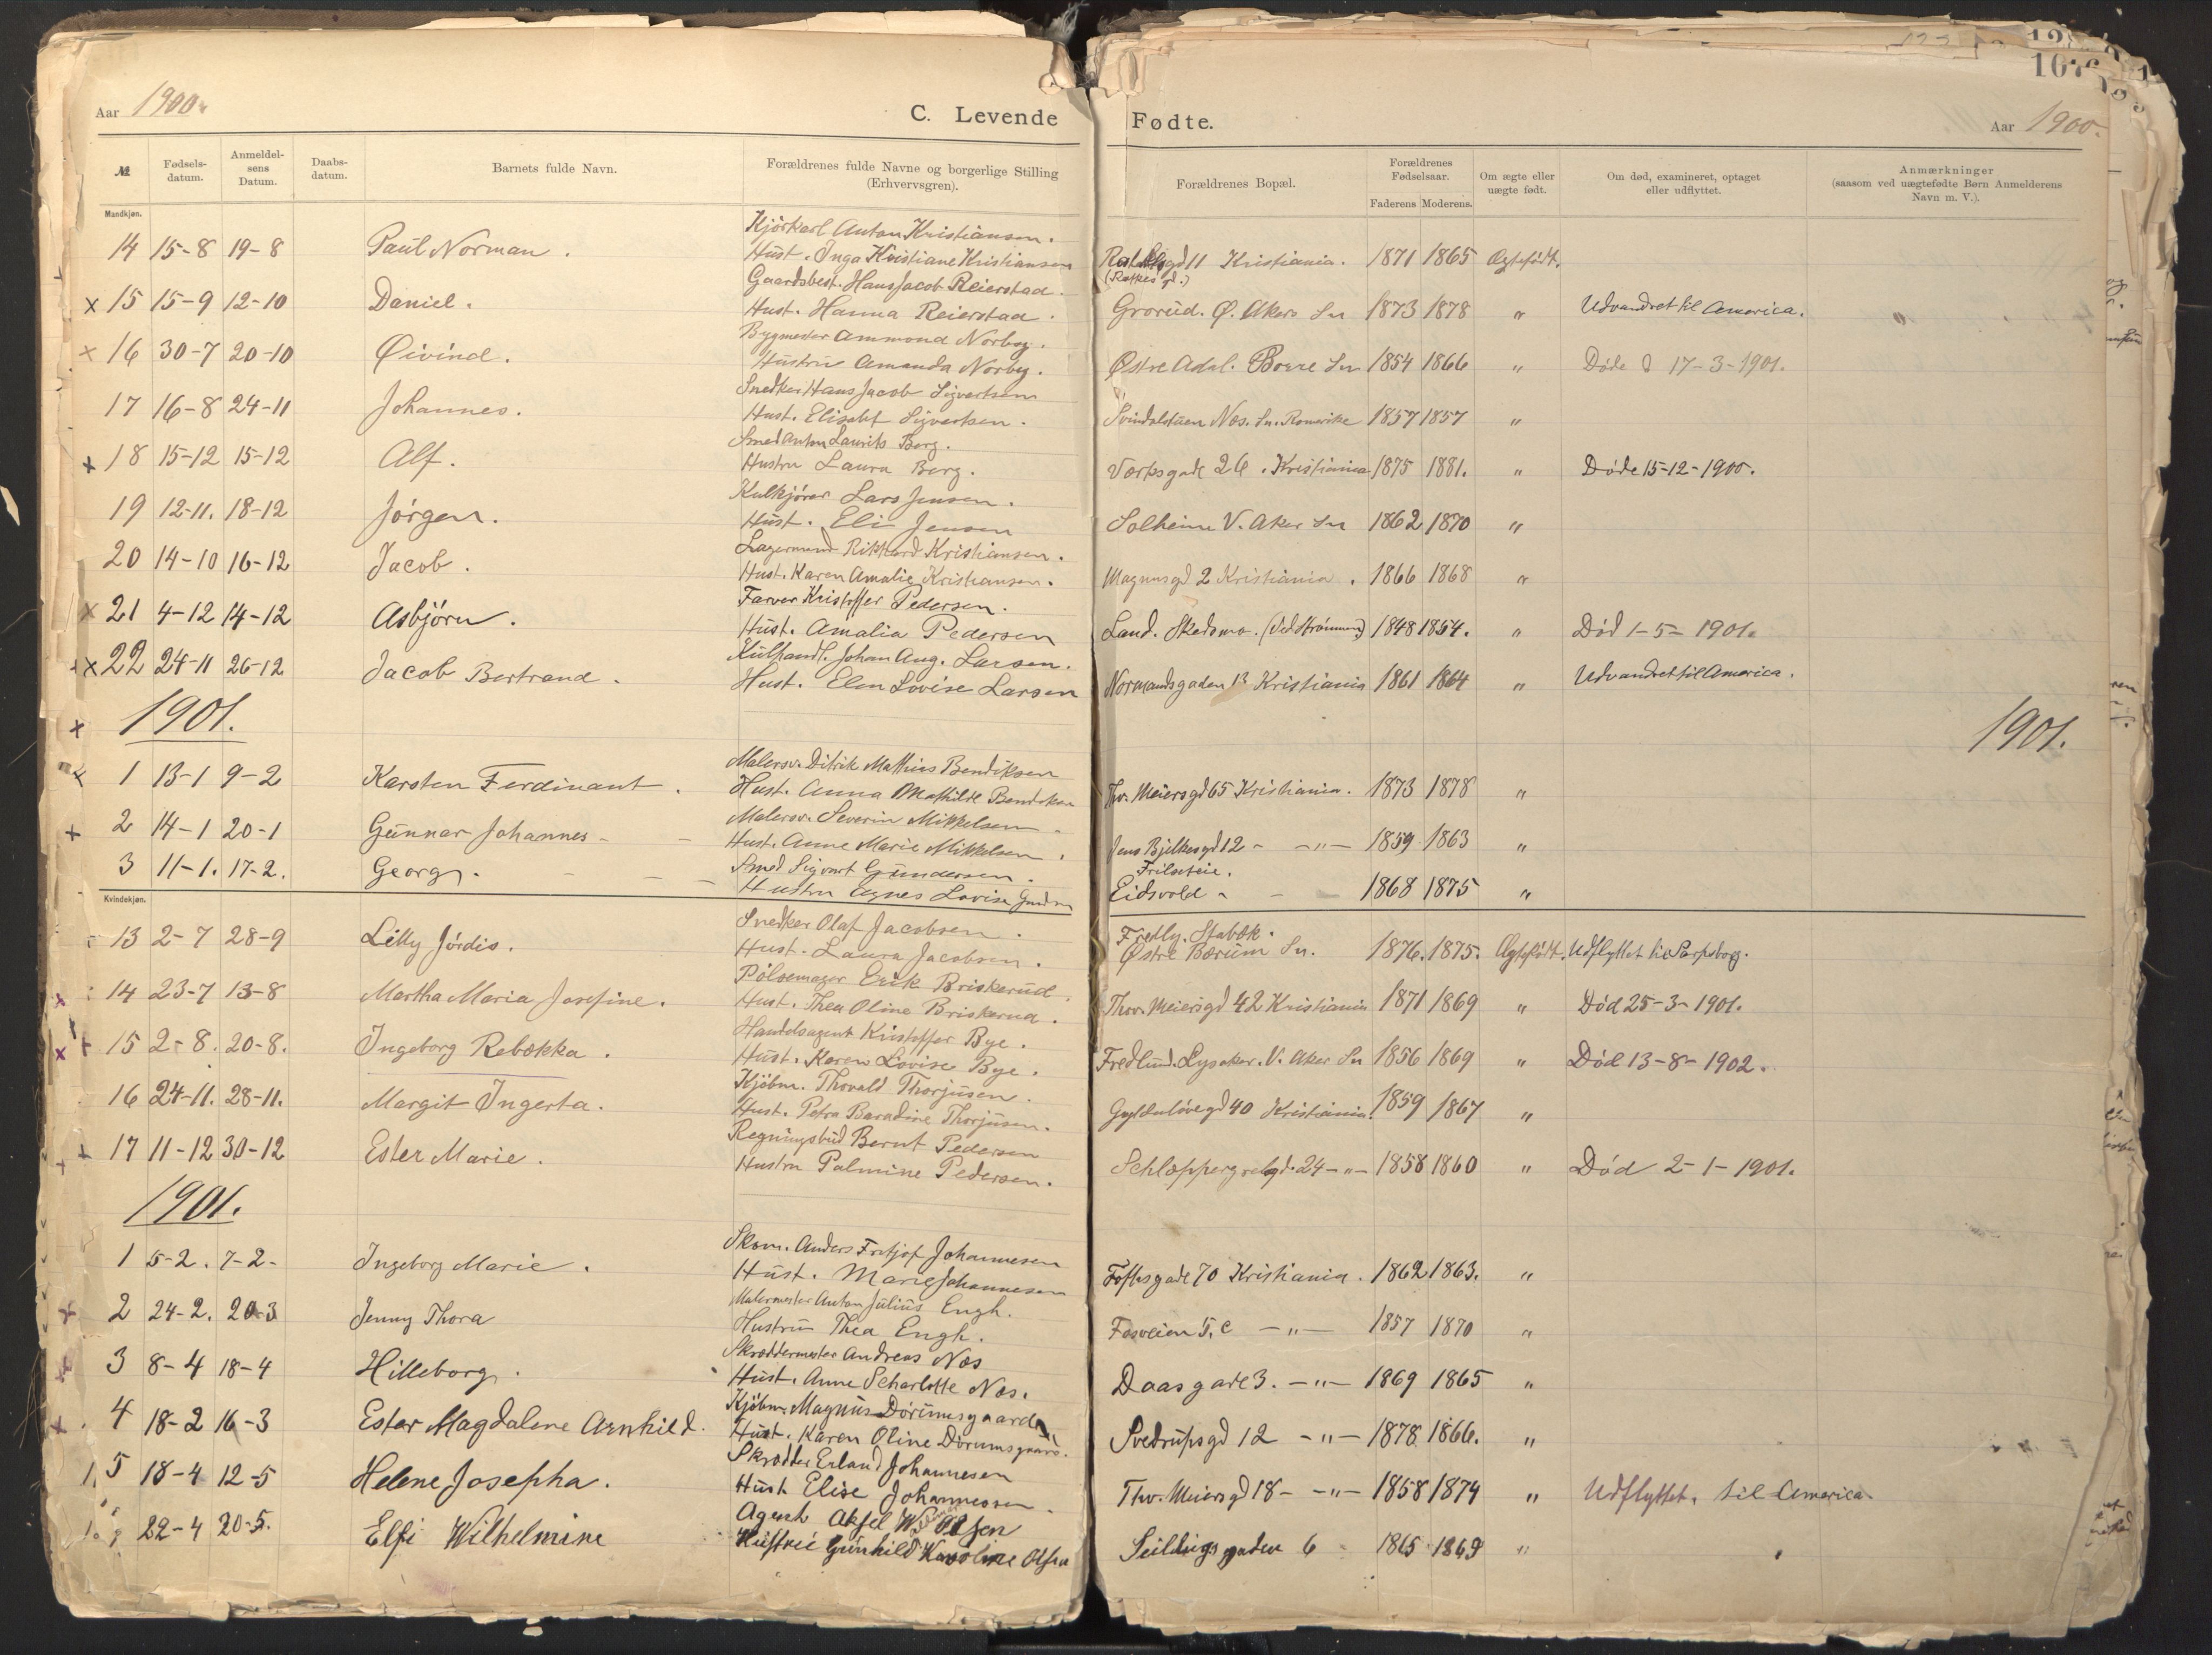 Aar 1900.
C. Levende Fødte.
Aar 1900.
№
Fødsels-datum.
Anmeldel-sens Datum.
Daabs-datum.
Barnets fulde Navn.
Forældrenes fulde Navne og borgerlige Stilling (Erhvervsgren).
Forældrenes Bopæl.
Forældrenes Fødselsaar.
Faderens Moderens.
Om ægte eller uægte født.
Om død, examineret, optaget eller udflyttet.
Anmærkninger (saasom ved uægtefødte Børn Anmelderens Navn m. V.).
Mandkjøn.
Kjørkarl Anton Kristiansen.
14 15-8 19-8 Paul Norman. Hust. Inga Kristiane Kristiansen gd 11 Kristiania. 1871 1865 Ægtefødt.
(Rathkes gd.)
Gaardsbest. Hans Jacob Reierstad.
x 15 15-9 12-10 Daniel. Hust. Hanna Reierstad. Grorud. Ø. Akers Sn 1873 1878 " Udvandret til America.
Bygmester Ammond Norbøg.
x 16 30-7 20-10 Øivind. Hustru Amanda Norby. Østre Adal. Sn 1854 1866 " Døde 17-3-1901.
Snedker Hans Jacob Sigvartsen
17 16-8 24-11 Johannes. Hust. Elisabt Sigvartsen. Svindalstuen Næs. Sn. Romerike 1857 1857 "
Smed Anton Laurits Berg.
x 18 15-12 15-12 Alf. Hustru Laura Berg. Værksgade 26. Kristiania 1875 1881. " Døde 15-12-1900.
Kulkjører Lars Jensen.
19 12-11. 18-12 Jørgen. Hust. Eli Jensen Solheim V. Aker Sn 1862 1870 "
Lagermand Rikhard Kristiansen.
20 14-10 16-12 Jacob. Hust. Karen Amalie Kristiansen. Magnusgd 2 Kristiania. 1866 1868 "
Farver Kristoffer Pedersen.
x 21 4-12 14-12 Asbjørn. Hust. Amalia Pedersen Land. Skedsmo. (Ved Strømmen) 1848 1854. " Død 1-5-1901.
Kulhandl. Johan Aug. Larsen.
x 22 24-11 26-12 Jacob Bertrand. Hust. Elen Lovise Larsen Normandsgaden 13 Kristiania 1861 1864 " Udvandret til America.
1901. 1901.
Malersv. Ditrik Mathias Bendiksen
1 13-1 9-2 Karsten Ferdinant. Hust. Anna Mathilde Bendiksen Thv. Meiersgd 65 Kristiania. 1873 1878 "
Malersv. Severin Mikkelsen
2 14-1 20-1 Gunnar Johannes Hust. Anne Marie Mikkelsen. Jens Bjelkesgd 12 - -"- 1859 1863 "
Smed Sigvart Gundersen. Frilseteie.
3 11-1. 17-2. Georg. Hustru Agnes Lovise Eidsvold 1868 1875 "
Kvindekjøn.
Snedker Olaf Jacobsen. Fredly. Stabæk.
13 2-7 28-9 Lilly Jórdis. Hust. Laura Jacobsen. Østre Bærum Sn. 1876. 1875. Ægtefødt. Udflyttet til Sarpsborg.
Pølsemager Erik Briskerud.
14 23-7 13-8 Martha Maria Josefine. Hust. Thea Oline Briskerud. Thorv. Meiersgd 42 Kristiania 1871 1869 " Død 25-3-1901.
Handelsagent Kristoffer Bye.
15 2-8. 20-8. Ingeborg Rebekka. Hust. Karen Lovise Bye. Fredlund. Lysaker. V. Aker Sn 1856 1869 " Død 13-8-1902.
Kjøbm. Thorvald Thorjusen.
16 24-11. 28-11. Margit Ingerta. Hust. Petra Baradine Thorjusen. Gyldenløvegd 40 Kristiania. 1859 1867 "
Regningsbud Bernt Pedersen
17 11-12 30-12 Ester Marie. Hustru Palmine Pedersen. 24 -"- 1858 1860 " Død 2-1-1901.
1901.
Skom. Anders Fritjof Johannesen
1 5-2. 7-2. Ingeborg Marie. Hust. Marie Johannesen Toftesgade 70 Kristiania. 1862 1863. "
Malermester Anton Julius Engh.
2 24-2. 20-3 Jenny Thora Hustru Thea Engh. Fosveien 5, c -"- 1857 1870 "
Skræddermester Andreas Næs
3 8-4 18-4 Hilleborg. Hust. Anne Scharlotte Næs. Daasgade 3. -"- 1869 1865 "
Kjøbm. Magnus Dørumsgaard
4 18-2 16-3 Ester Magdalene Arnhild. Hust. Karen Oline Dørumsgaard. Svedrupsgd 12 -"- 1878 1866. "
Skrædder Erland Johannesen
5 18-4 12-5 Helene Josepha. Hust Elise Johannessen. Thv. Meiersgd 18 - -"- 1858 1874 " Udflyttet. til America
Agent Aksel W. Olsen
22-4 20-5. Elfi Wilhelmine Hustrue Gunhild Karoline Olsen Seildugsgaden 6 1865 1869 "